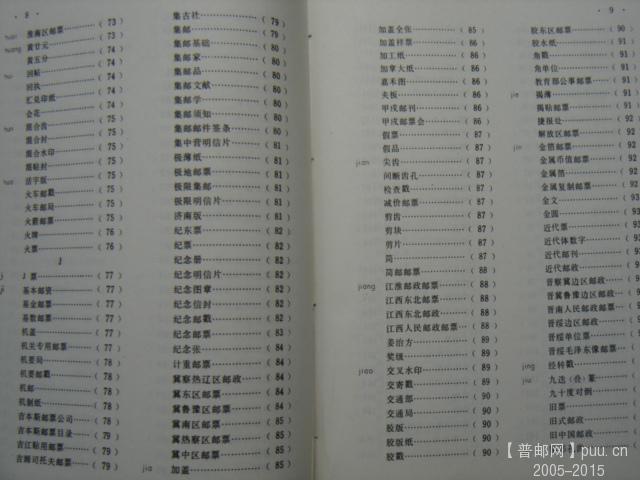 · 8 ·
淮南区邮票……………（73）
黄廿元………………（73）
黄五分………………（74）
回帖…………………（74）
回执…………………（74）
汇兑印纸……………（74）
会花…………………（74）
混合齿………………（75）
混合封………………（75）
混合水印……………（75）
混贴封………………（75）
活字版………………（75）
火车邮戳……………（75）
火车邮局……………（75）
火箭邮票……………（75）
火牌…………………（76）
火票…………………（76）
J
J票…………………（77）
基本邮资……………（77）
基金邮票……………（77）
基数邮票……………（77）
机盖…………………（77）
机关专用邮票………（78）
机要局………………（78）
机要邮戳……………（78）
机邮…………………（78）
机制纸………………（78）
吉本斯邮票公司……（78）
吉本斯邮票目录……（79）
吉江贴用邮票………（79）
吉湘司托夫邮票……（79）
集古社………………（79）
集邮…………………（79）
集邮基础……………（80）
集邮家………………（80）
集邮品………………（80）
集邮文献……………（80）
集邮学………………（80）
集邮须知……………（80）
集邮邮件签条………（80）
集中营明信片………（81）
极薄纸………………（81）
极地邮票……………（81）
极限集邮……………（81）
极限明信片…………（81）
济南版………………（81）
纪东票………………（82）
纪票…………………（82）
纪念册………………（82）
纪念明信片…………（82）
纪念图章……………（82）
纪念信封……………（82）
纪念邮戳……………（82）
纪念邮票……………（83）
纪念张………………（84）
计重邮票……………（84）
冀察热辽区邮政……（84）
冀东区邮票…………（84）
冀鲁豫区邮票………（84）
冀南区邮票…………（85）
冀热察区邮票………（85）
冀中区邮票…………（85）
jia 加盖……………（85）
· 9 ·
加盖全张……………（85）
加盖样票……………（86）
加工纸………………（86）
加拿大纸……………（86）
嘉禾图………………（86）
夹板…………………（86）
甲戌邮刊……………（86）
甲戌邮票会…………（86）
假票…………………（87）
假品…………………（87）
jian 尖齿……………（87）
间断齿孔……………（87）
检查戳………………（87）
减价邮票……………（87）
剪齿…………………（87）
剪块…………………（87）
剪片…………………（87）
简……………………（88）
简邮邮票……………（88）
jiang 江淮邮政邮票…（88）
江西东北邮票………（88）
江西东北邮政………（88）
江西人民邮政邮票…（88）
姜治方………………（89）
奖级…………………（89）
jiao 交叉水印………（89）
交寄戳………………（89）
交通部………………（89）
交通局………………（89）
胶版…………………（90）
胶版纸………………（90）
胶戳…………………（90）
胶东区邮票…………（90）
胶水纸………………（90）
角戳…………………（91）
角单位………………（91）
教育部公事邮票……（91）
jie 揭薄……………（91）
揭贴邮票……………（91）
捷报处………………（92）
解放区邮票…………（92）
jin 金箔邮票………（92）
金属币值邮票………（92）
金属箔………………（92）
金属复制邮票………（92）
金文…………………（93
金圆…………………（93
近代票………………（93
近代体数字…………（93
近代邮刊……………（93
近代邮政
晋察冀边区邮政
晋冀鲁豫边区邮政
晋南人民邮政邮票
晋绥边区邮政
晋绥单位票
晋绥毛泽东像邮票
jing 经转戳
jiu 九迭（叠）篆
九十度对倒
旧票
旧式邮政
旧中国邮政
【普邮网】puu.cn
2005-2015